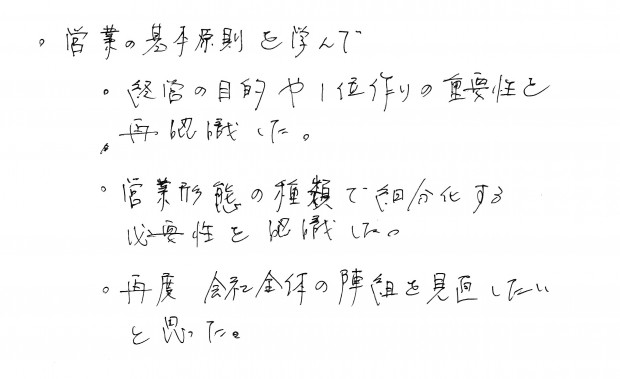 。営業の基本原則を学んで
。経営の目的や1位作りの重要性を
再認識した。
。営業形態の種類で細分化する
必要性を認識した。
。再度 会社全体の陣組を見直したい
と思った。